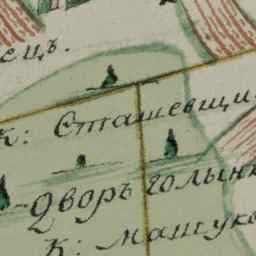 ецъ.
К: Сташевщи
Дворъ голын
К: машук